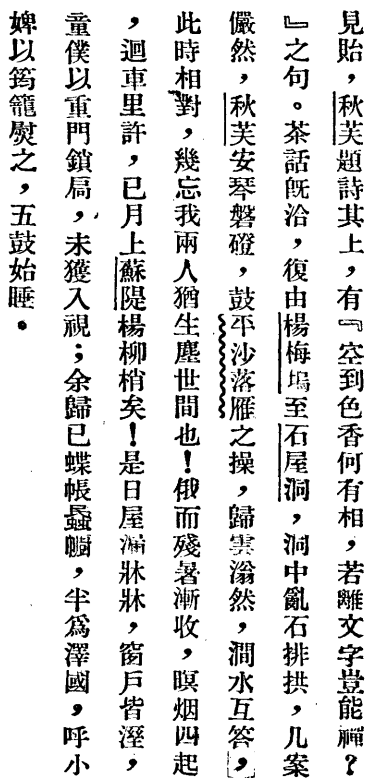 見貽，秋芙題詩其上，有『空到色香何有相，若離文字豈能禪？
』之句。茶話旣洽，復由楊梅塢至石屋洞，洞中亂石排拱，几案
儼然，秋芙安琴磐磴，鼓平沙落雁之操，歸雲滃然，澗水互答，
此時相對，幾忘我兩人猶生塵世間也！俄而殘暑漸收，暝烟四起
，迴車里許，已月上蘇隄楊柳梢矣！是日屋漏牀牀，窗戶皆溼，
童僕以重門鎖扃，未獲入視；余歸已蝶帳蟁㡡，半爲澤國，呼小
婢以筠籠熨之，五鼓始睡。